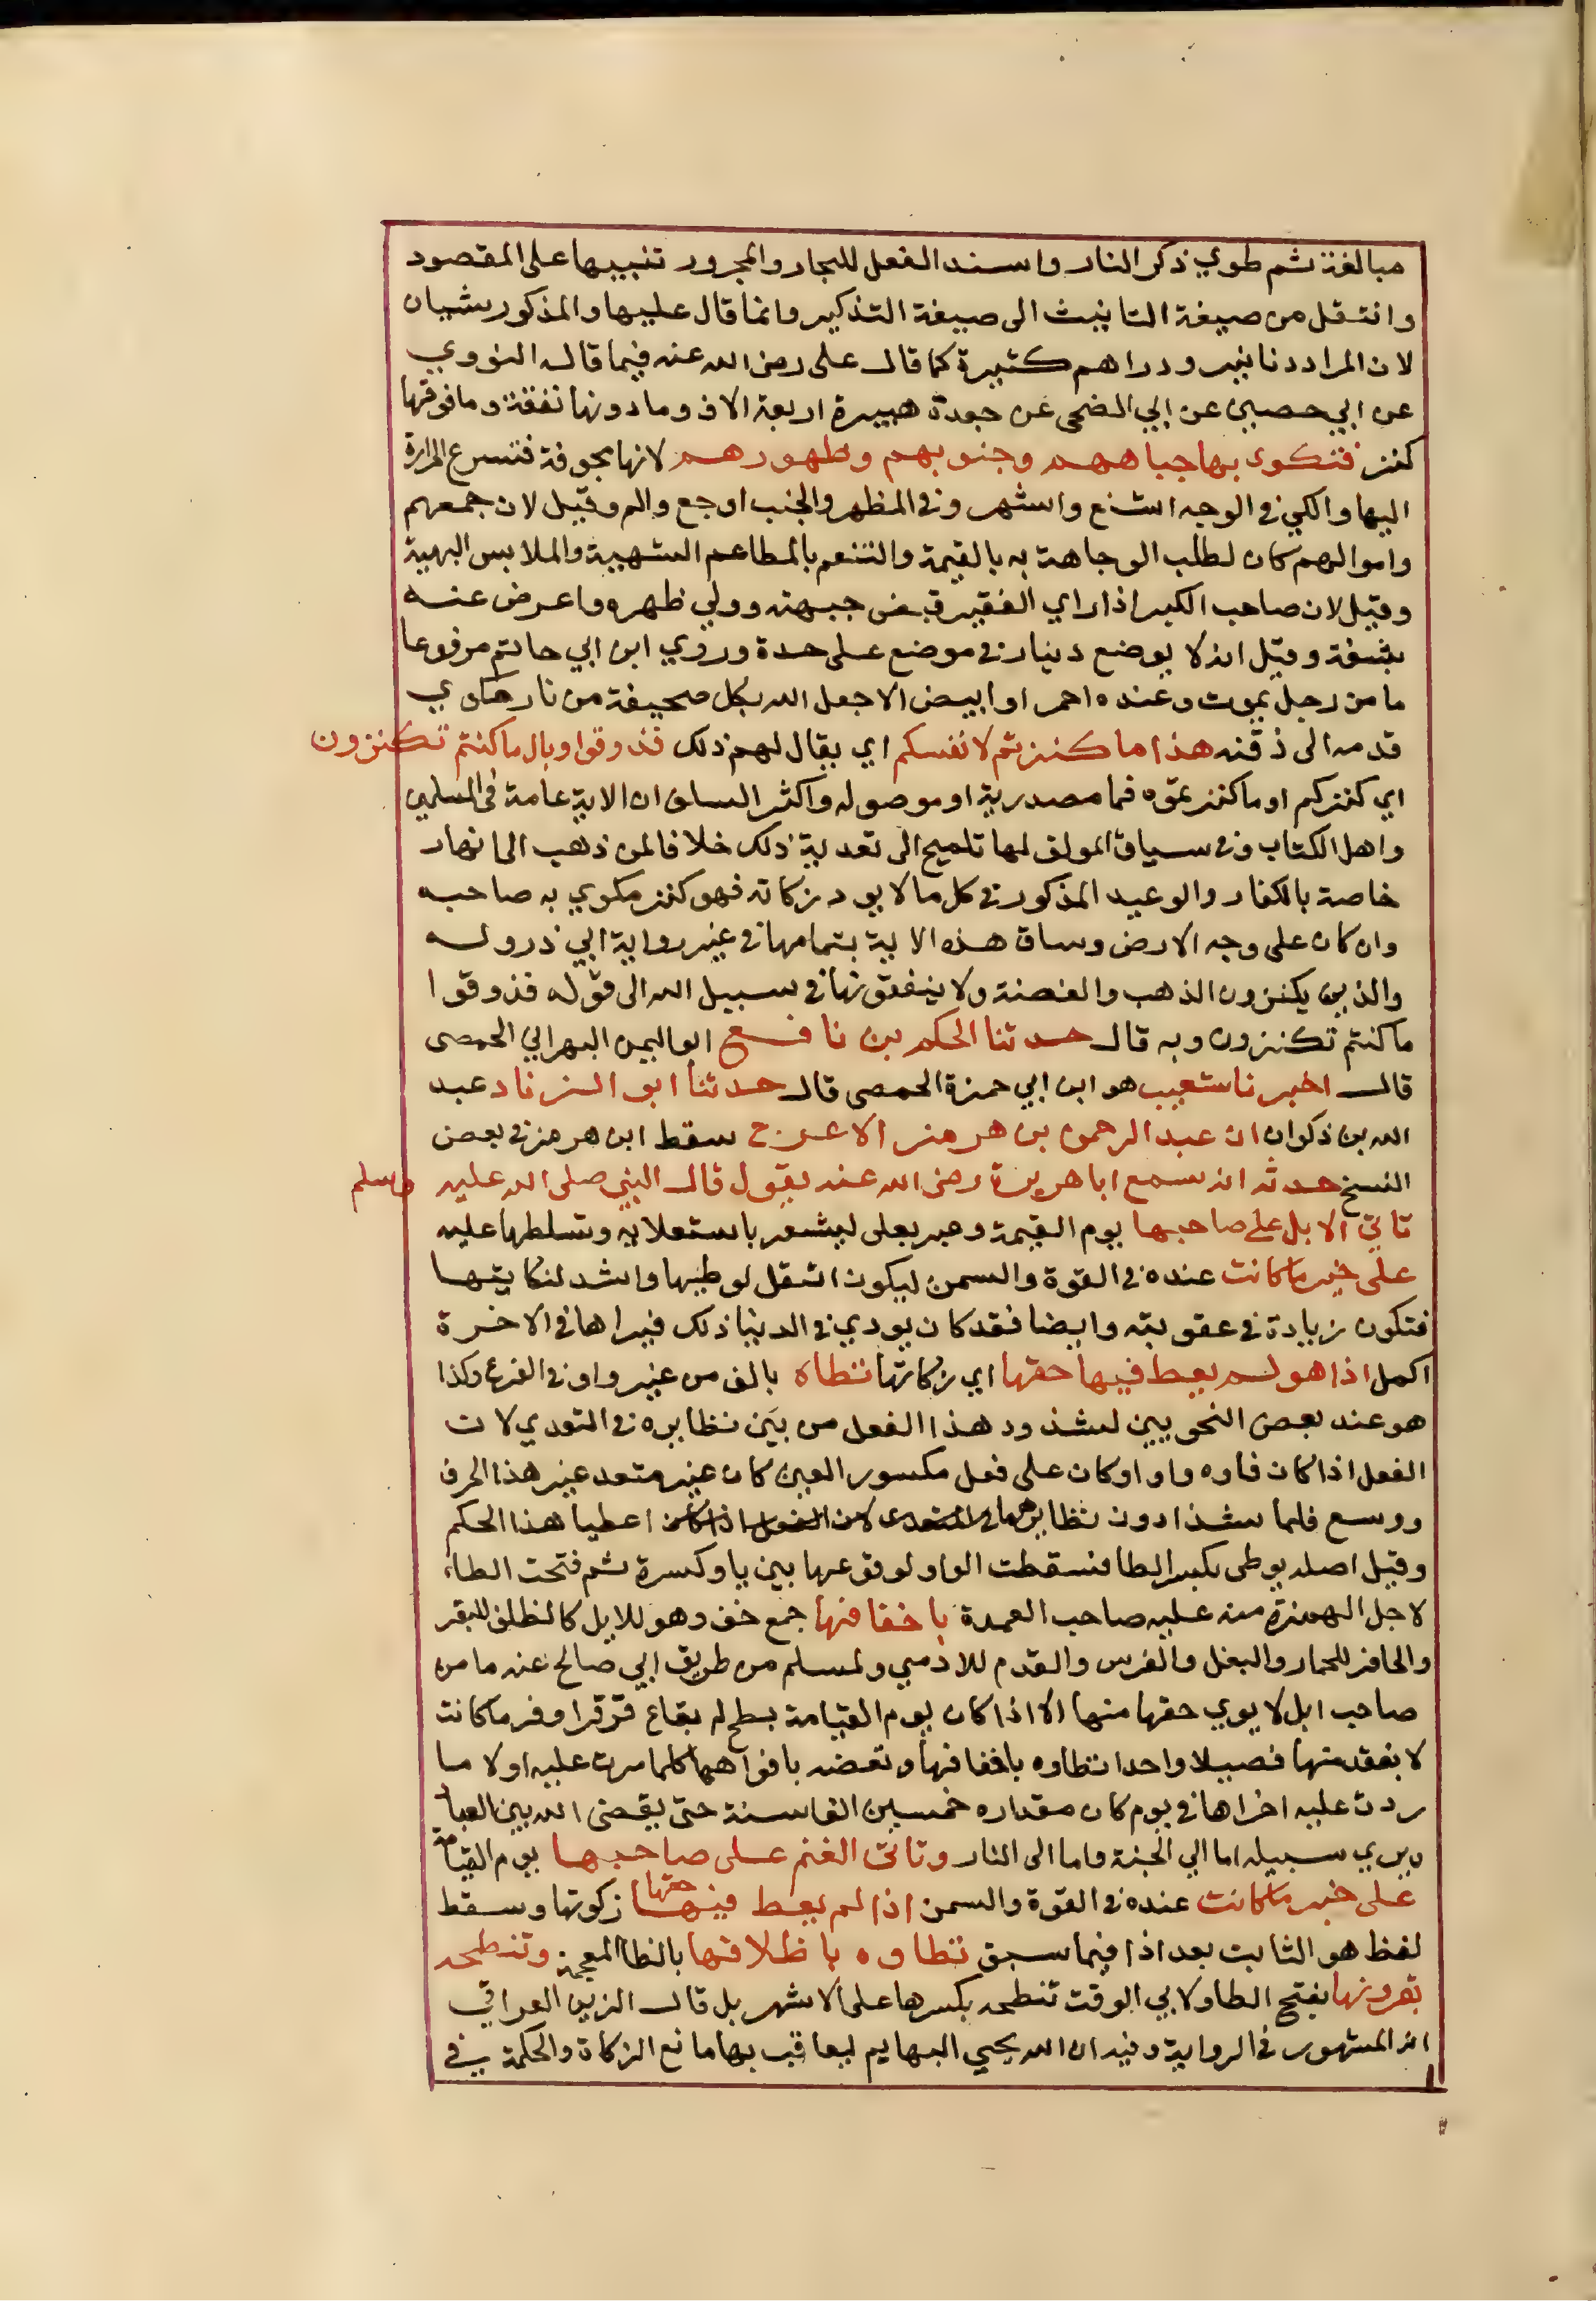 مبالغة ثم طوي ذكر النار واسند الفعل للجار والمجرور تنبيها على المقصود
وانتقل من صيغة التانيث الى صيغة التذكير وانما قال عليها والمذكور شيان
لان المراد دنانير ودراهم كثيرة كما قال على رضى الله عنه فيما قاله النووي
عن ابي حصين عن ابي الضحى عن جعدة هبيرة اربعة الاف وما دونها نفقة وما فوقها
كنز فتكوى بها جباههم وجنوبهم وظهورهم لانها مجوفة فتسرع الحرارة
اليها والكي في الوجه اشنع واشهر وفي الظهر والجنب اوجع والم وقيل لان جمعهم
واموالهم كان لطلب الوجاهة به بالقيمة والتنعم بالمطاعم الشهية والملابس البهية
وقيل لان صاحب الكبر اذا راي الفقير قبض جبهته وولي ظهره واعرض عنه
بشفة وقيل انه لا يوضع دينار في موضع على حدة وروي ابن ابي حاتم مرفوعا
ما من رجل يموت وعنده احمر او ابيض الا جعل الله بكل صحيفة من نار تكوي
قدمه الى ذقنه هذا ما كنزتم لانفسكم اي يقال لهم ذلك فذوقوا وبال ما كنتم تكنزون
اي كنزكم او ما كنزتموه فما مصدرية او موصوله واكثر السلف ان الاية عامة في المسلمين
واهل الكتاب وفي سياق المولف لها تلميح الى تعدية ذلك خلافا لمن ذهب الى انها
خاصة بالكفار والوعيد المذكور في كل ما لا يود زكاته فهو كنز مكوي به صاحبه
وان كان على وجه الارض وساق هذه الاية بتمامها في غير رواية ابي ذر وله
والذين يكنزون الذهب والفضة ولا ينفقونها في سبيل الله الى قوله فذوقوا
ما كنتم تكنزون وبه قال حدثنا الحكم بن نافع ابو اليمن البهراني الحمصى
قال اخبرنا شعيب هو ابن ابي حمزة الحمصى قال حدثنا ابو الزناد عبد
الله بن ذكوان ان عبد الرحمن بن هرمز الاعرج سقط ابن هرمز في بعض
النسخ حدثه انه سمع ابا هريرة رضى الله عنه يقول قال النبي صلى الله عليه وسلم
تاتي الابل على صاحبها يوم القيمة وعبر بعلى ليشعر باستعلايه وتسلطها عليه
على خير ما كانت عنده في القوة والسمن ليكون اثقل لوطيها واشد لنكايتها
فتكون زيادة في عقوبته وايضا فقد كان يودي في الدنيا ذلك فيراها في الاخرة
اكمل اذا هو لم يعط فيها حقها اي زكاتها تطاه بالف من غير واو في الفرع وكذا
هو عند بعض النحويين لشذوذ هذا الفعل من بين نظايره في التعدي لان
الفعل اذا كان فاوه واوا وكان على فعل مكسور العين كان غير متعد غير هذا الحرف
ووسع فلما شذا دون نظايرهما في التعدى لان الفعل اذا كان اعطيا هذا الحكم
وقيل اصله يوطى بكسر الطا فسقطت الواو لوقوعها بين يا وكسرة ثم فتحت الطاء
لاجل الهمزة منه عليه صاحب العمدة باخفافها جمع خف وهو للابل كالظلف للبقر
والحافر للحمار والبغل والفرس والقدم للادمي ولمسلم من طريق ابي صالح عنه ما من
صاحب ابل لا يوي حقها منها الا اذا كان يوم القيامة بطح لم بقاع قرقر اوفر ما كانت
لا يفقد منها فصيلا واحدا تطاوه باخفافها وتعضه بافواهها كلما مرت عليه اولا ما
ردت عليه اخراها في يوم كان مقداره خمسين الف اسنة حتى يقضى الله بين العباد
ويري سبيله اما الي الجنة واما الى النار وتاتى الغنم على صاحبها يوم القيامة
على خير ما كانت عنده في القوة والسمن اذا لم يعط فيها حقها زكوتها وسقط
لفظ هو الثابت بعد اذا فيما سبق تطاوه باظلافها بالظا المعجمة وتنطحه
بقرونها بفتح الطا ولابي الوقت تنطحه بكسرها على الاشهر بل قال الزين العراقي
انه المشهور في الرواية وفيه ان الله يحيي البهايم ليعاقب بها مانع الزكاة والحكمة في